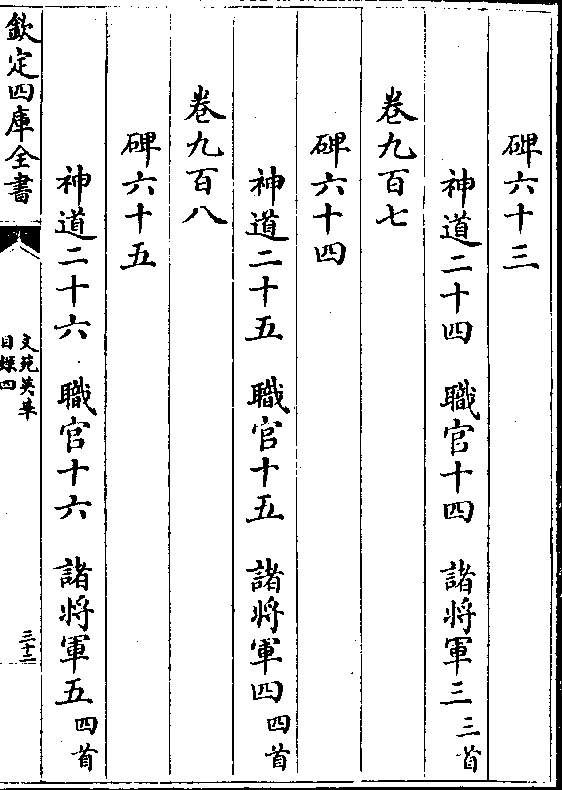 碑六十三
神道二十四 職官十四 諸將軍三 三首
卷九百七
碑六十四
神道二十五 職官十五 諸將軍四 四首
卷九百八
碑六十五
神道二十六 職官十六 諸將軍五 四首
欽定四庫全書
文苑英華
目録四
三十二